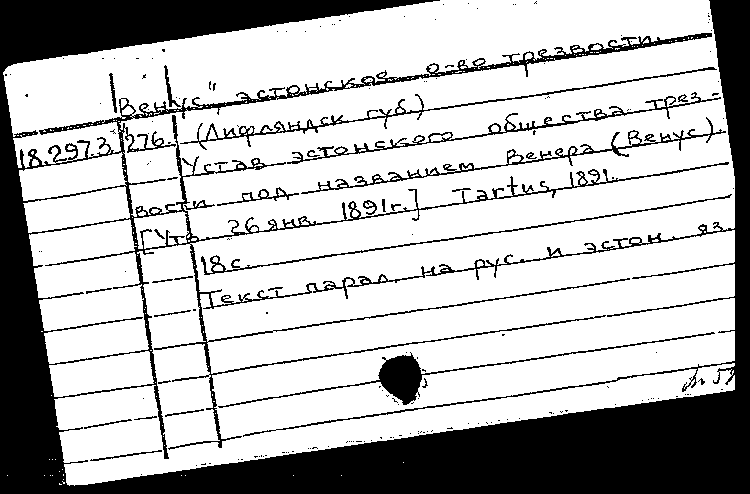 Венус", эстонское о-во трезвости.
18.297.3. 276. (Лифляндск губ.)
Устав эстонского общества трез-
вости под названием Венера (Венус).
[Утв. 26 янв. 1891г.] Tartus, 1891.
18 с.
Текст парал. на рус. и эстон. яз.